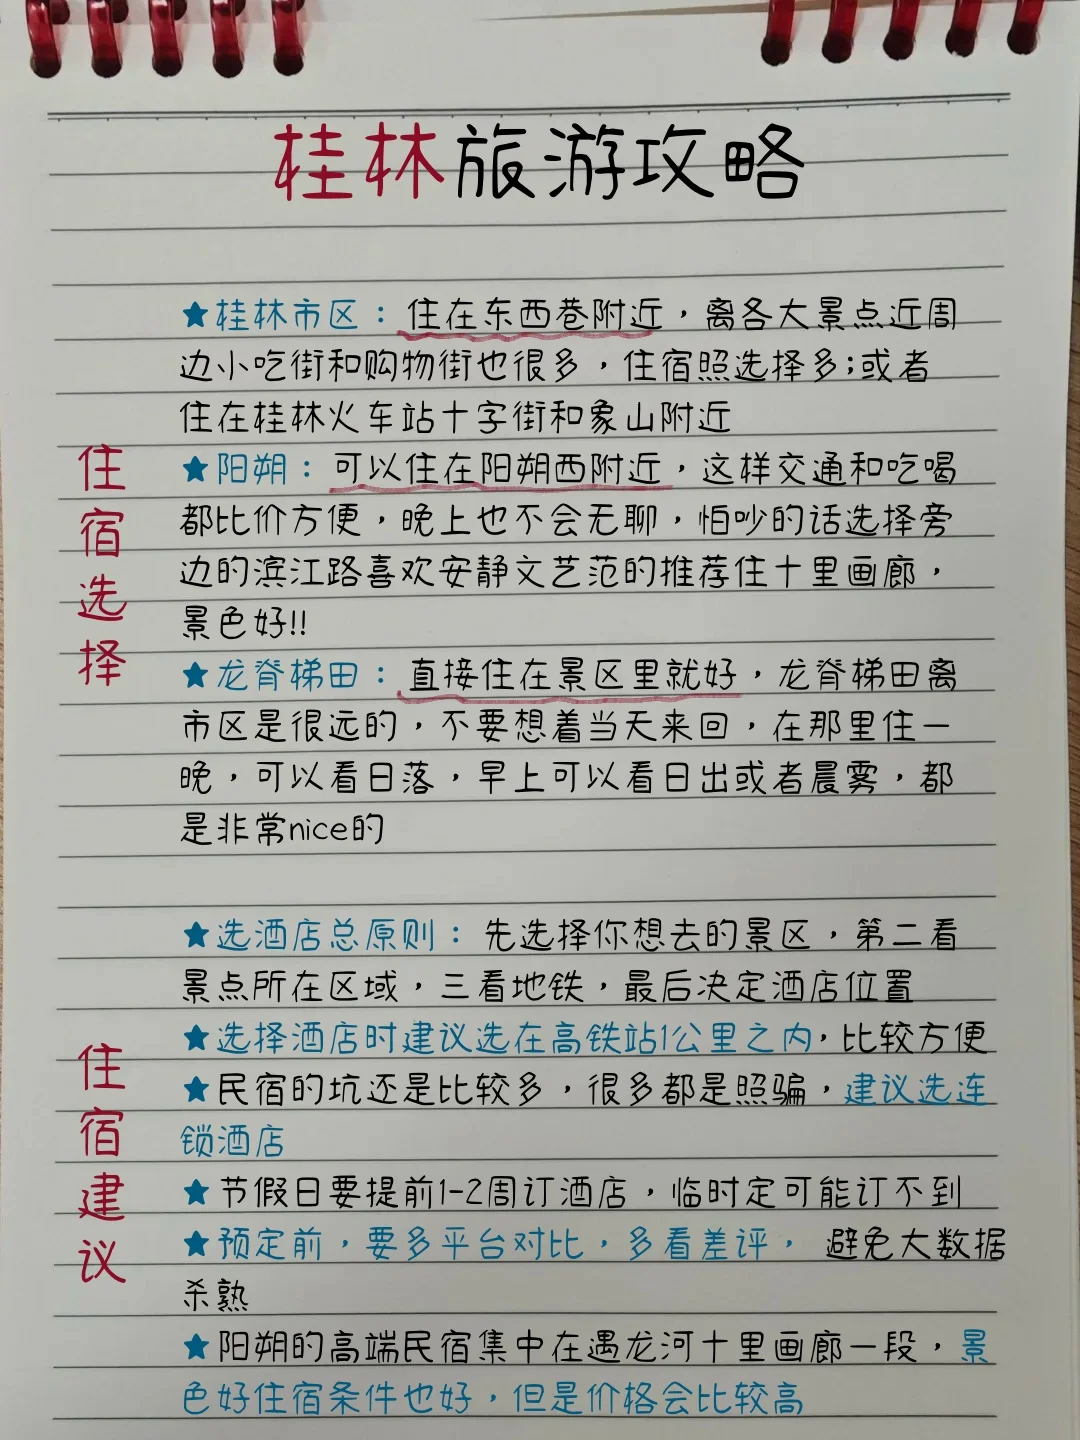 桂林旅游攻略
住宿选择
★桂林市区：住在东西巷附近，离各大景点近周
边小吃街和购物街也很多，住宿照选择多;或者
住在桂林火车站十字街和象山附近
★阳朔：可以住在阳朔西附近，这样交通和吃喝
都比价方便，晚上也不会无聊，怕吵的话选择旁
边的滨江路喜欢安静文艺范的推荐住十里画廊，
景色好!!
★龙脊梯田：直接住在景区里就好，龙脊梯田离
市区是很远的，不要想着当天来回，在那里住一
晚，可以看日落，早上可以看日出或者晨雾，都
是非常nice的
住宿建议
★选酒店总原则：先选择你想去的景区，第二看
景点所在区域，三看地铁，最后决定酒店位置
★选择酒店时建议选在高铁站1公里之内，比较方便
★民宿的坑还是比较多，很多都是照骗，建议选连
锁酒店
★节假日要提前1-2周订酒店，临时定可能订不到
★预定前，要多平台对比，多看差评，避免大数据
杀熟
★阳朔的高端民宿集中在遇龙河十里画廊一段，景
色好住宿条件也好，但是价格会比较高